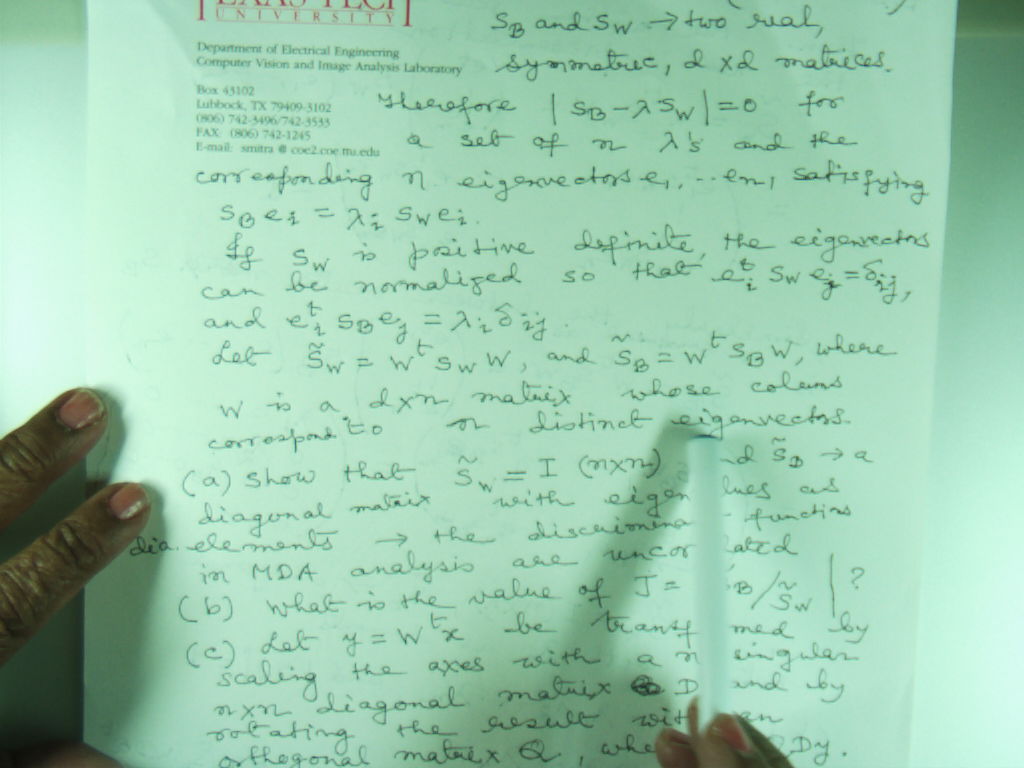 TEXAS TECH
UNIVERSITY
Department of Electrical Engineering
Computer Vision and Image Analysis Laboratory
Box 43102
Lubbock, TX 79409-3102
(806) 742-3496/742-3533
FAX: (806) 742-1245
E-mail: smitra @ coe2.coe.ttu.edu
S_B and S_W → two real,
symmetric, d x d matrices.
Therefore |S_B - λ S_W| = 0 for
a set of n λ's and the
corresponding n eigenvectors e₁, .. e_n, satisfying
S_B e_i = λ_i S_W e_i.
If S_W is positive definite, the eigenvectors
can be normalized so that e_i^t S_W e_j = δ_ij,
and e_i^t S_B e_j = λ_i δ_ij.
Let S̃_W = W^t S_W W, and S̃_B = W^t S_B W, where
W is a dxn matrix whose colums
correspond to n distinct eigenvectors.
(a) Show that S̃_W = I (nxn) S̃_B → a
diagonal matrix with as
dia. elements → the functions
in MDA analysis are
(b) What is the value of J = ?
(c) Let y = W^t x be by
scaling the axes with a
nxn diagonal matrix D and by
rotating the result
orthogonal matrix Q, QDy.